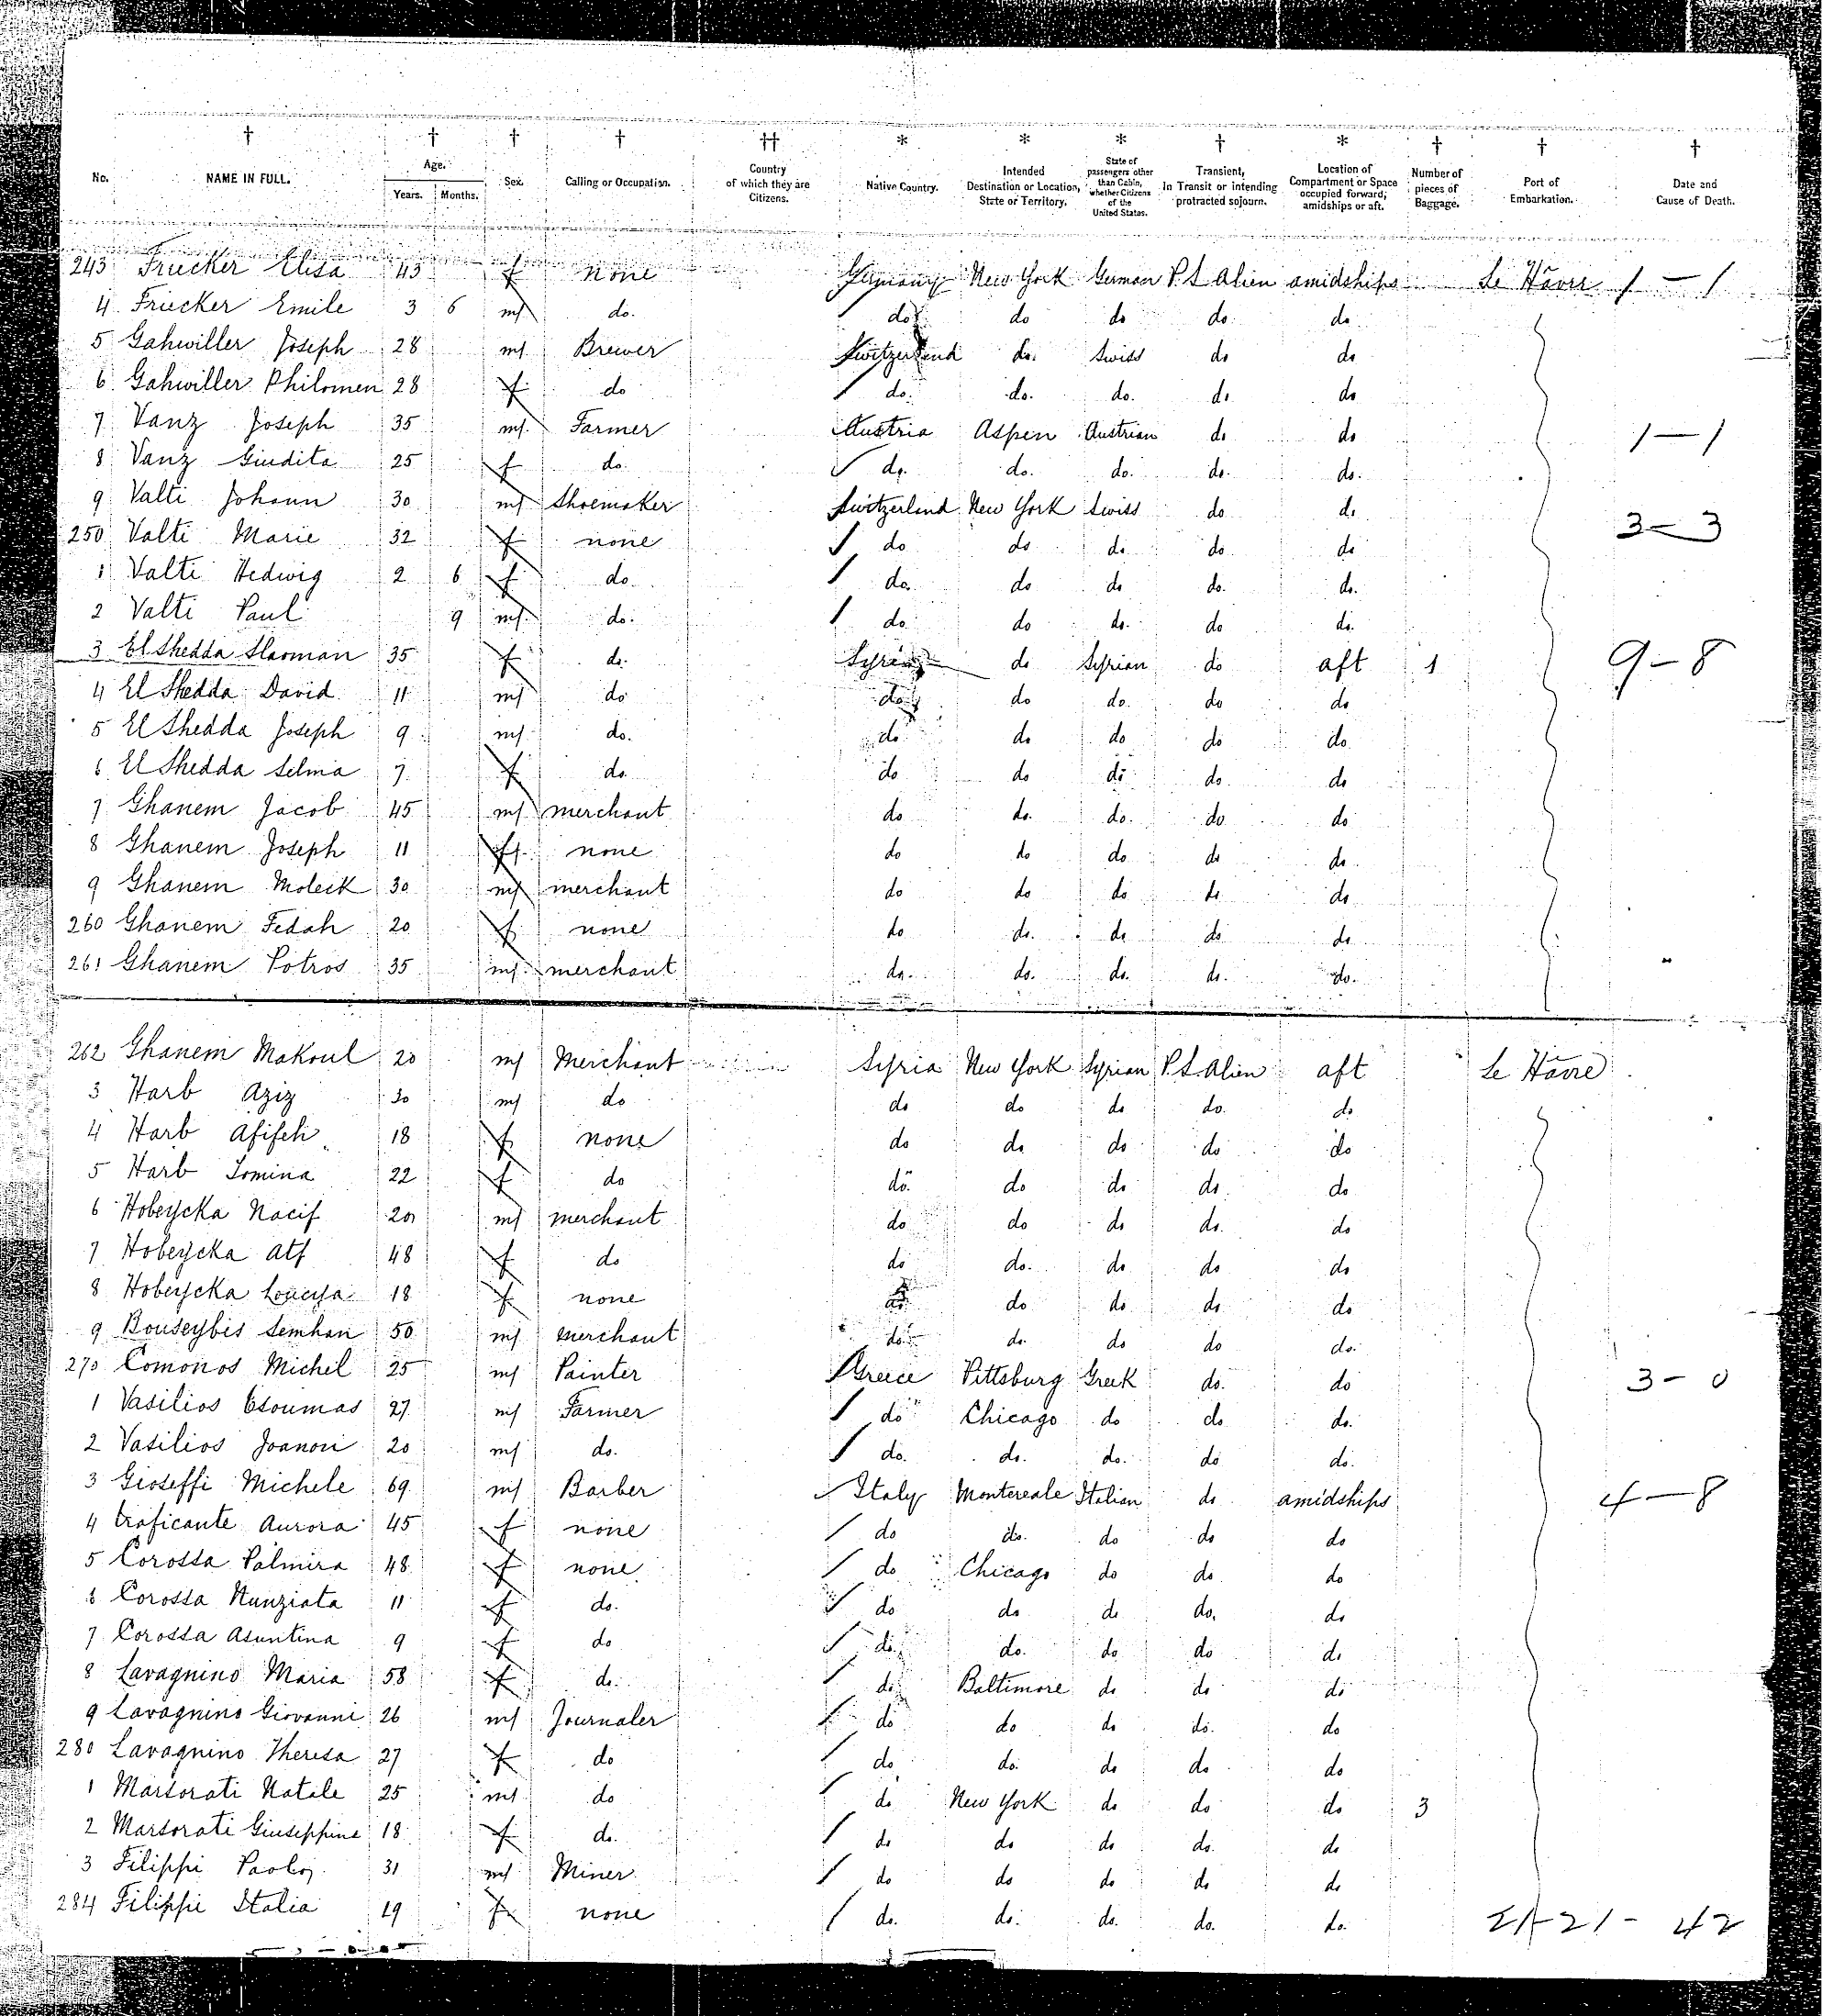 No. NAME IN FULL. Age. Years. Months. Sex. Calling or Occupation. Country of which they are Citizens. Native Country. Intended Destination or Location, State or Territory. State of passengers other than Cabin, whether Citizens of the United States. Transient, In Transit or intending protracted sojourn. Location of Compartment or Space occupied forward, amidships or aft. Number of pieces of Baggage. Port of Embarkation. Date and Cause of Death.
243 Friecker Elisa 43 f none Germany New York German P.S Alien amidships Le Hâvre 1 - 1
4 Friecker Emile 3 6 m do. do do do do. do
5 Gahwiller Joseph 28 m Brewer Switzerland do. Swiss do do
6 Gahwiller Philomen 28 f do do. do. do. do do
7 Vanz Joseph 35 m Farmer Austria Aspen Austrian do do 1 - 1
8 Vanz Giudita 25 f do do. do. do. do. do.
9 Valti Johann 30 m Shoemaker Switzerland New York Swiss do do 3 - 3
250 Valti Marie 32 f none do do do do do
1 Valti Hedwig 2 6 f do. do. do do do. do.
2 Valti Paul 9 m do. do do do. do do.
3 El Shedda 35 f do. Syria do Syrian do aft 1 9 - 8
4 El Shedda David 11 m do do do do. do do
5 El Shedda Joseph 9 m do. do do do do do
6 El Shedda Selma 7 f do do do do do do
7 Ghanem Jacob 45 m merchant do do. do. do do
8 Ghanem Joseph 11 none do do do do do
9 Ghanem Moleik 30 m merchant do do do do do
260 Ghanem Fedah 20 f none do do. do do do
261 Ghanem Potros 35 m merchant do. do. do. do. do.
262 Ghanem Makoul 20 m Merchant Syria New York Syrian P.S Alien aft Le Hâvre
3 Harb Aziz 30 m do do do do do. do
4 Harb Afifeh 18 f none do do do do do
5 Harb 22 f do do. do do do. do
6 Hobeycka Nacif 20 m merchant do do do do. do
7 Hobeycka Atf 48 f do do do. do do do
8 Hobeycka 18 f none do do do do do
9 Bouseybis Semhan 50 m merchant do. do. do do do.
270 Comonos Michel 25 m Painter Greece Pittsburg Greek do. do 3 - 0
1 Vasilios Csoumas 27 m Farmer do Chicago do do do.
2 Vasilios Joanon 20 m do. do. do. do. do do.
3 Gioseffi Michele 69 m Barber Italy Montereale Italian do amidships 4 - 8
4 Traficante Aurora 45 f none do do. do do do
5 Corossa Palmira 48 f none do Chicago do do do
6 Corossa Nunziata 11 f do. do do do do. do
7 Corossa Asuntina 9 f do do. do. do do do
8 Lavagnino Maria 58 f do. do Baltimore do do do
9 Lavagnino Giovanni 26 m Journaler do do do do. do
280 Lavagnino Theresa 27 f do do do. do do do
1 Marsorati Natale 25 m do do New York do do do 3
2 Marsorati Giuseppina 18 f do. do do do do. do
3 Filippi Paolo 31 m Miner do do do do do
284 Filippi Italia 19 f none do. do. do. do. do. 21 - 42